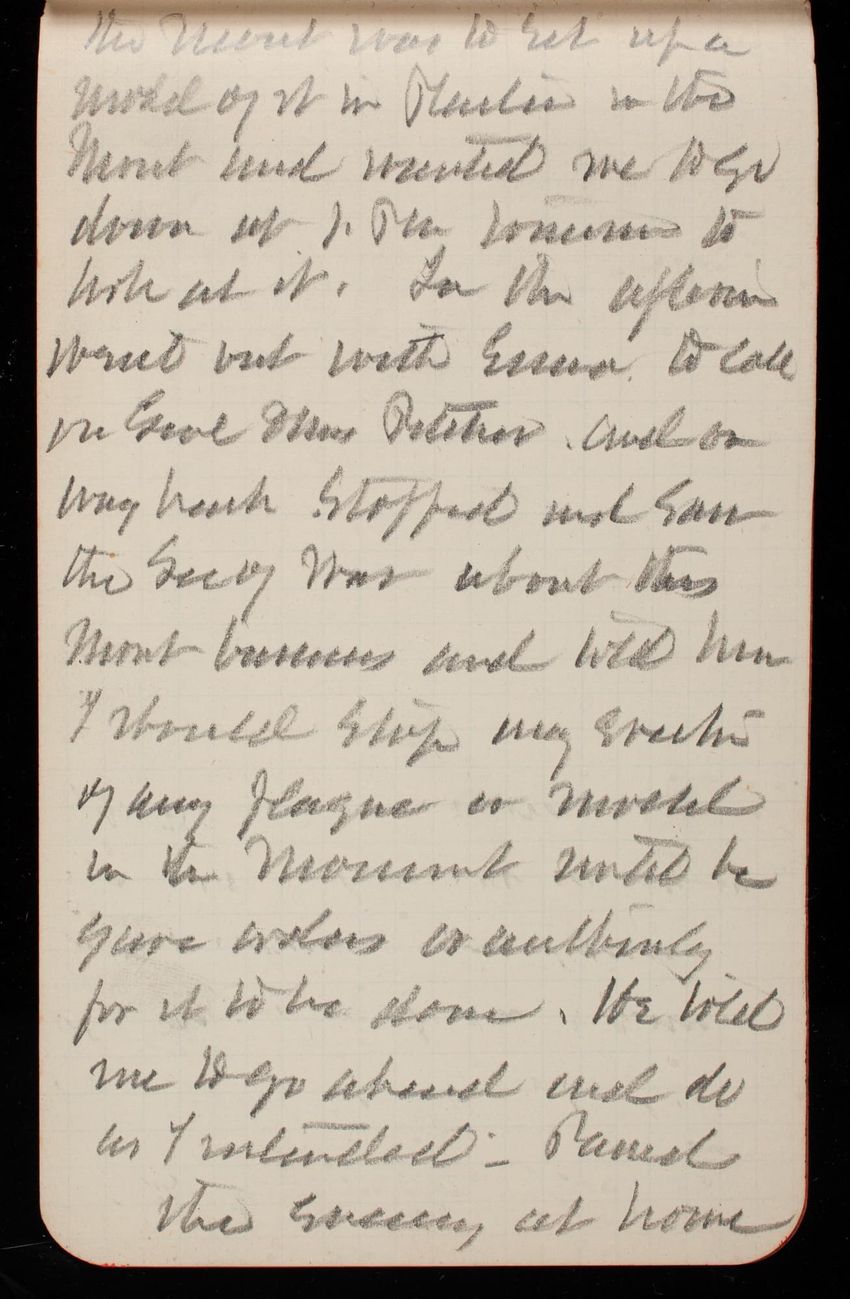 the Monut was to set up a
model of it in Plaster in the
Monut and wanted me to go
down at 1. P.M. tomorrow to
look at it. In the afternoon
went out with Emma to call
on Genl & Mrs and on
way back Stopped and Saw
the Secy War about this
Mont business and told him
I should Stop any Erection
of any plaque or model
in the Monument until he
gave orders or authority
for it to be done. He told
me to go ahead and do
as I intended - Passed
the evening at home